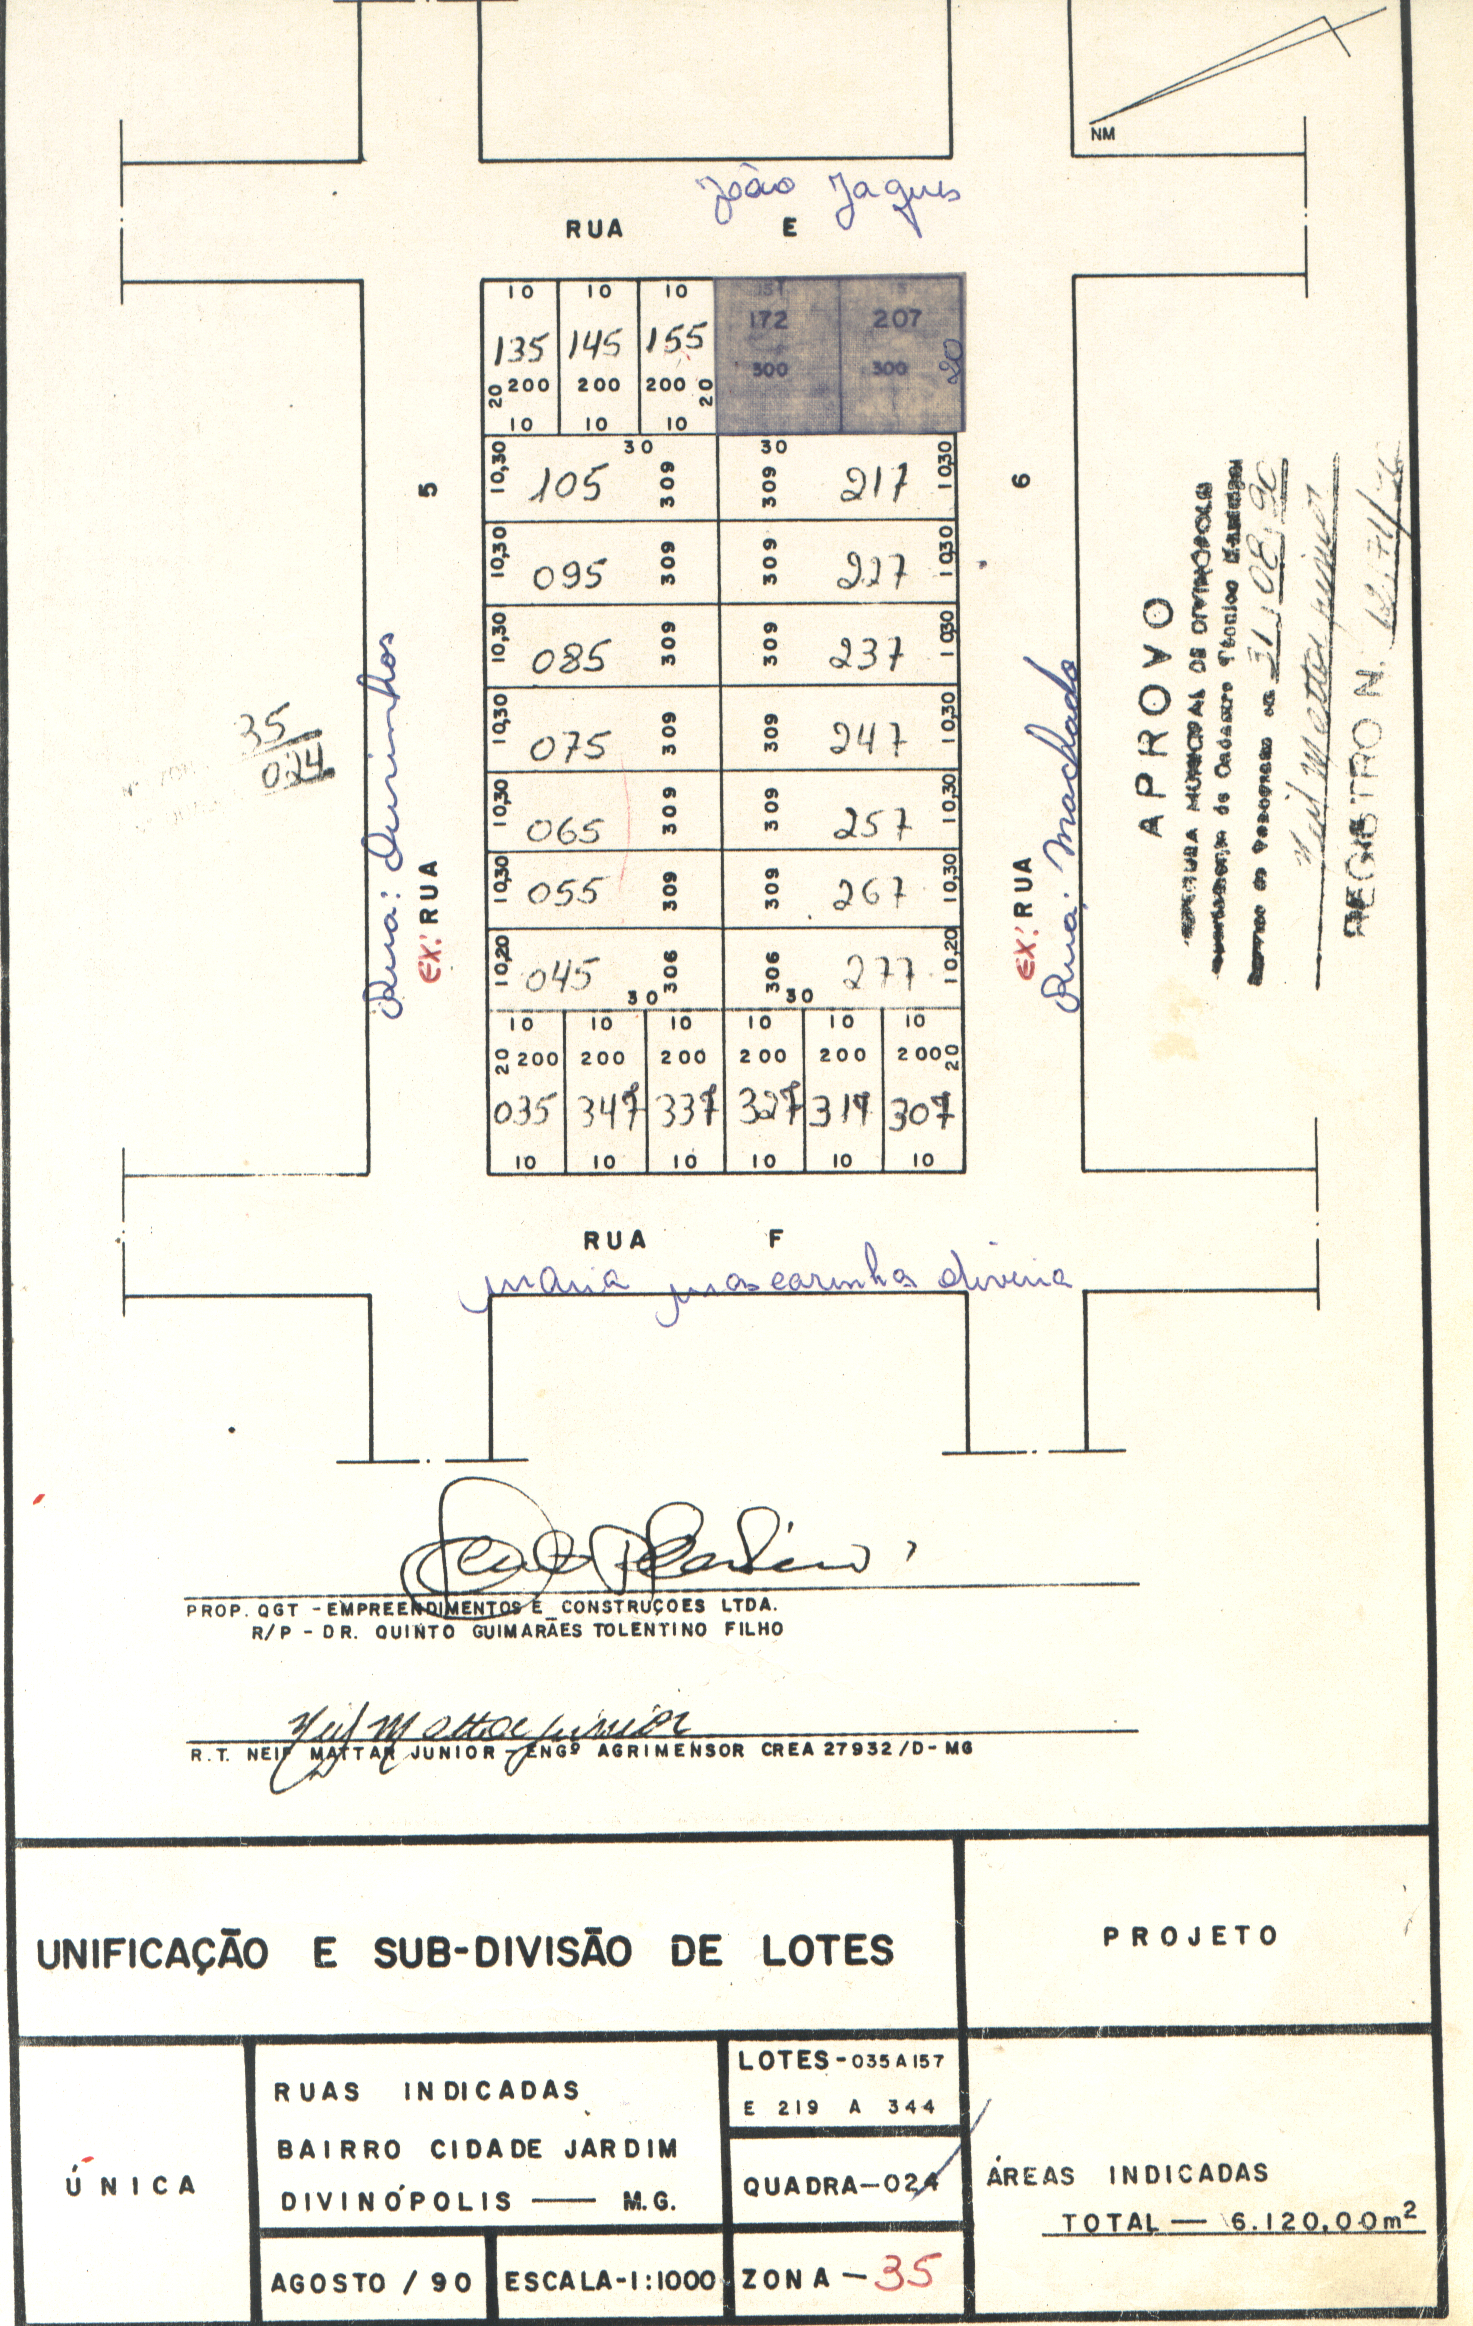 NM
João Jaques
RUA E
10 10 10 15 15
135 145 155 172 207
20 200 200 200 20 300 300 20
10 10 10
30 30
10,30 105 309 309 217 10,30
10,30 095 309 309 227 10,30
10,30 085 309 309 237 10,30
10,30 075 309 309 247 10,30
10,30 065 309 309 257 10,30
10,30 055 309 309 267 10,30
10,20 045 306 306 277 10,20
30 30
10 10 10 10 10 10
20 200 200 200 200 200 200 20
035 347 337 327 317 307
10 10 10 10 10 10
5
Rua: Ourinhos
EX: RUA
6
Rua: Machado
EX: RUA
35
024
APROVO
MUNICIPAL DE DIVINOPOLIS
de Cadastro Técnico
em 31/08/90
Neif Mattar Junior
REGISTRO N.
RUA F
maria mascarinhas oliveira
PROP. QGT - EMPREENDIMENTOS E CONSTRUÇOES LTDA.
R/P - DR. QUINTO GUIMARÃES TOLENTINO FILHO
Neif Mattar Junior
R.T. NEIF MATTAR JUNIOR - ENGº AGRIMENSOR CREA 27932/D-MG
UNIFICAÇÃO E SUB-DIVISÃO DE LOTES
PROJETO
ÚNICA
RUAS INDICADAS
BAIRRO CIDADE JARDIM
DIVINÓPOLIS — M.G.
LOTES-035A157
E 219 A 344
QUADRA-024
ÁREAS INDICADAS
TOTAL — 6.120,00m²
AGOSTO / 90
ESCALA-1:1000
ZONA - 35